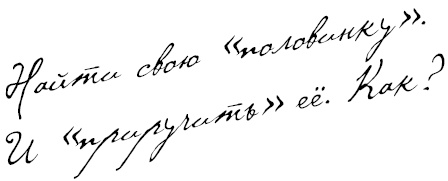 Найти свою «половинку».
И «приручить» её. Как?